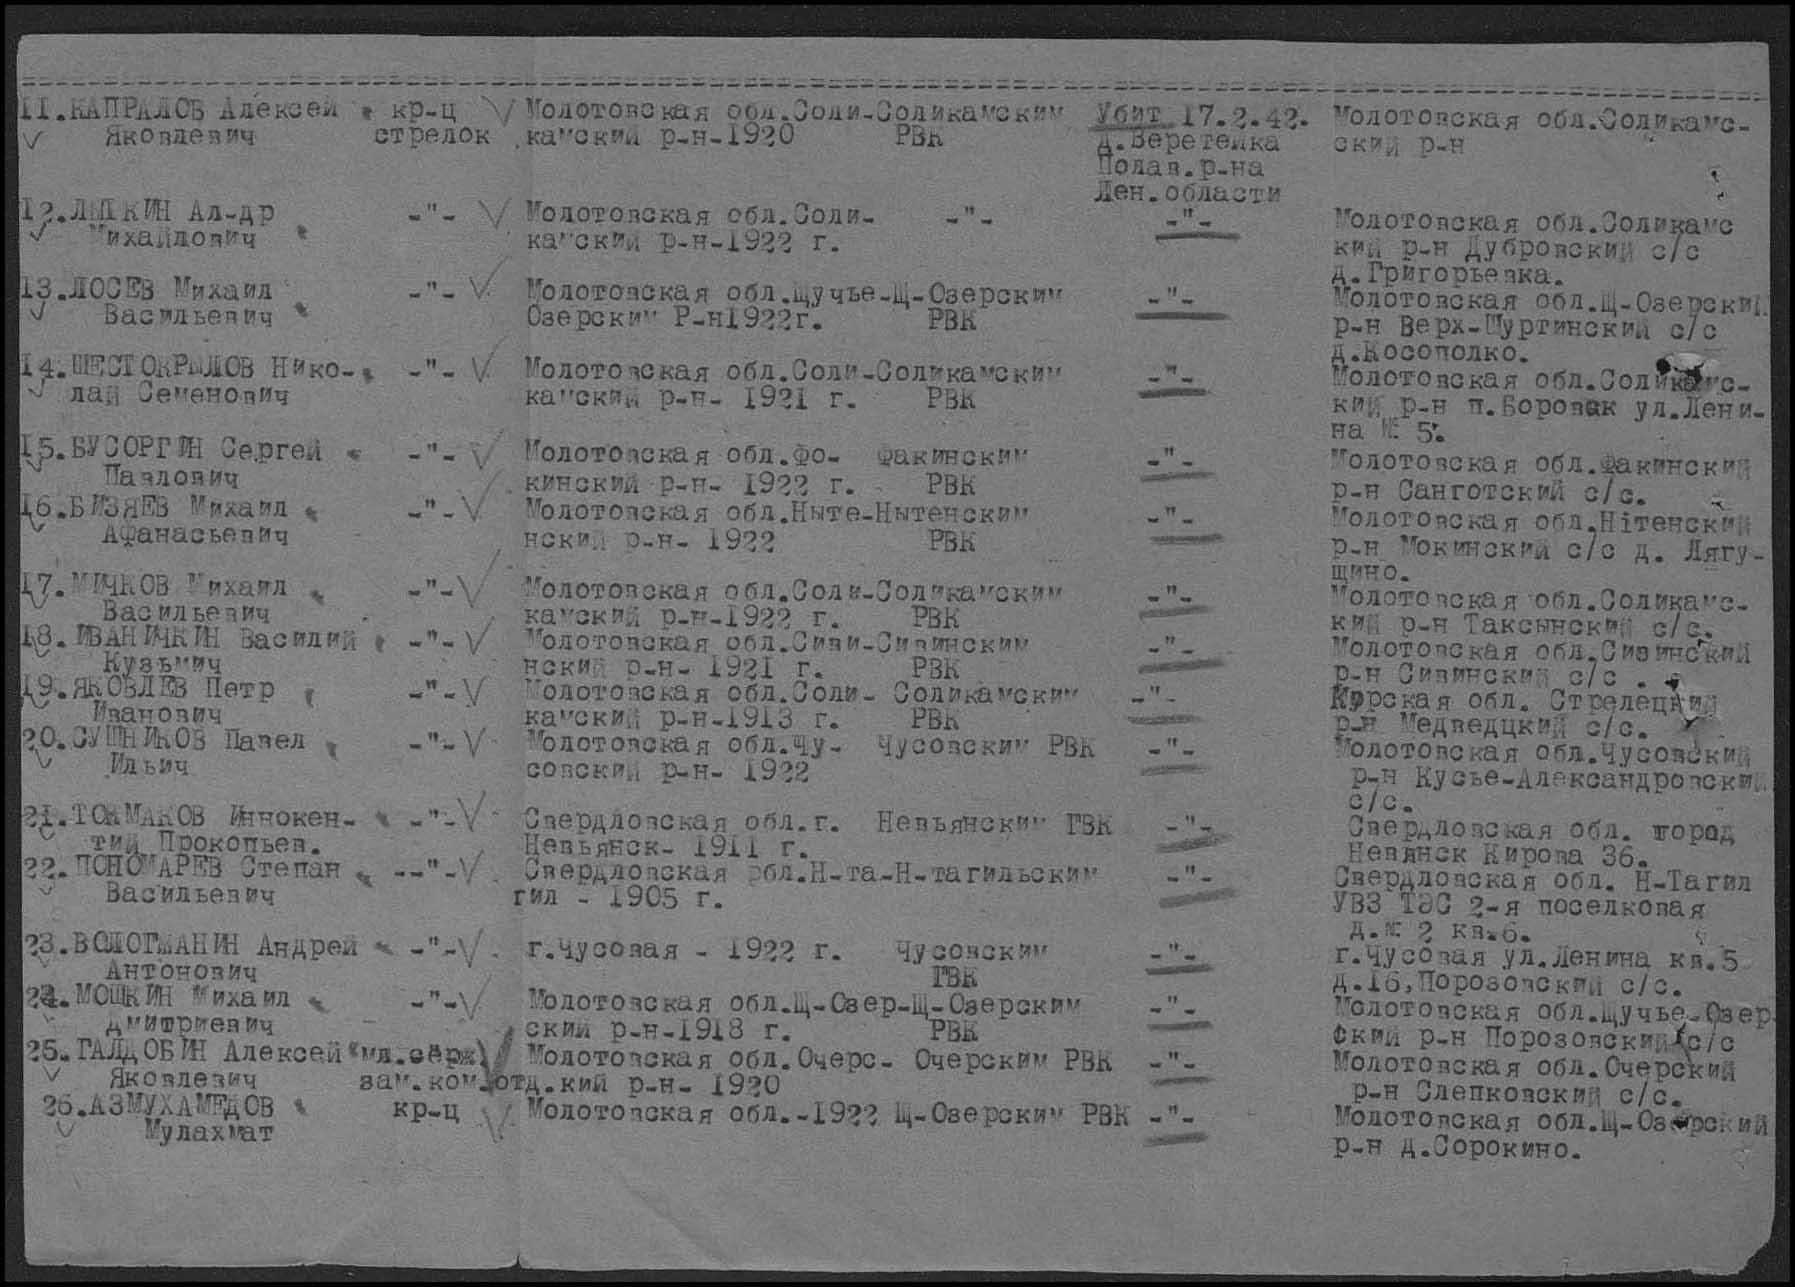 11.КАПРАЛОВ Алексей кр-ц Молотовская обл.Соли-Соликамским Убит 17.2.42. Молотовская обл.Соликамс-
Яковлевич стрелок камский р-н-1920 РВК д.Веретейка ский р-н
Полав.р-на
Лен.области
12.ЛЯПКИН Ал-др -"- Молотовская обл.Соли- -"- -"- Молотовская обл.Соликамс
Михайлович камский р-н-1922 г. кий р-н Дубровский с/с
д.Григорьевка.
13.ЛОСЕВ Михаил -"- Молотовская обл.Щучье-Щ-Озерским -"- Молотовская обл.Щ-Озерский
Васильевич Озерским Р-н1922г. РВК р-н Верх-Шуртинский с/с
д.Косополко.
14.ШЕСТОКРЫЛОВ Нико- -"- Молотовская обл.Соли-Соликамским -"- Молотовская обл.Соликамс-
лай Семенович камский р-н- 1921 г. РВК кий р-н п.Боровск ул.Лени-
на № 5.
15.БУСОРГИН Сергей -"- Молотовская обл.Фо- Факинским -"- Молотовская обл.Факинский
Павлович кинский р-н- 1922 г. РВК р-н Санготский с/с.
16.БИЗЯЕВ Михаил -"- Молотовская обл.Ныте-Нытенским -"- Молотовская обл.Нітенский
Афанасьевич нский р-н- 1922 РВК р-н Мокинский с/с д. Лягу-
щино.
17.МИЧКОВ Михаил -"- Молотовская обл.Соли-Соликамским -"- Молотовская обл.Соликамс-
Васильевич камский р-н-1922 г. РВК кий р-н Таксынский с/с.
18.ИВАНИЧКИН Василий -"- Молотовская обл.Сиви-Сивинским -"- Молотовская обл.Сивинский
Кузьмич нский р-н- 1921 г. РВК р-н Сивинский с/с .
19.ЯКОВЛЕВ Петр -"- Молотовская обл.Соли- Соликамским -"- Курская обл. Стрелецкий
Иванович камский р-н-1913 г. РВК р-н Медведцкий с/с.
20.СУШНИКОВ Павел -"- Молотовская обл.Чу- Чусовским РВК -"- Молотовская обл.Чусовский
Ильич совский р-н- 1922 р-н Кусье-Александровский
с/с.
21.ТОКМАКОВ Иннокен- -"- Свердловская обл.г. Невьянским ГВК -"- Свердловская обл. город
тий Прокопьев. Невьянск- 1911 г. Невянск Кирова 36.
22.ПОНОМАРЕВ Степан --"- Свердловская обл.Н-та-Н-тагильским -"- Свердловская обл. Н-Тагил
Васильевич гил - 1905 г. УВЗ ТЭС 2-я поселковая
д.№ 2 кв.6.
23.ВОЛОГЖАНИН Андрей -"- г.Чусовая - 1922 г. Чусовским -"- г.Чусовая ул.Ленина кв.5
Антонович ГВК д.16,Порозовский с/с.
24.МОШКИН Михаил -"- Молотовская обл.Щ-Озер-Щ-Озерским -"- Молотовская обл.Щучье-Озер-
Дмитриевич ский р-н-1918 г. РВК ский р-н Порозовский с/с
25.ГАЛДОБИН Алексей мл.серж Молотовская обл.Очерс- Очерским РВК -"- Молотовская обл.Очерский
Яковлевич зам.ком.отд.кий р-н- 1920 р-н Слепковский с/с.
26.АЗМУХАМЕДОВ кр-ц Молотовская обл.-1922 Щ-Озерским РВК -"- Молотовская обл.Щ-Озерский
Мулахмат р-н д.Сорокино.